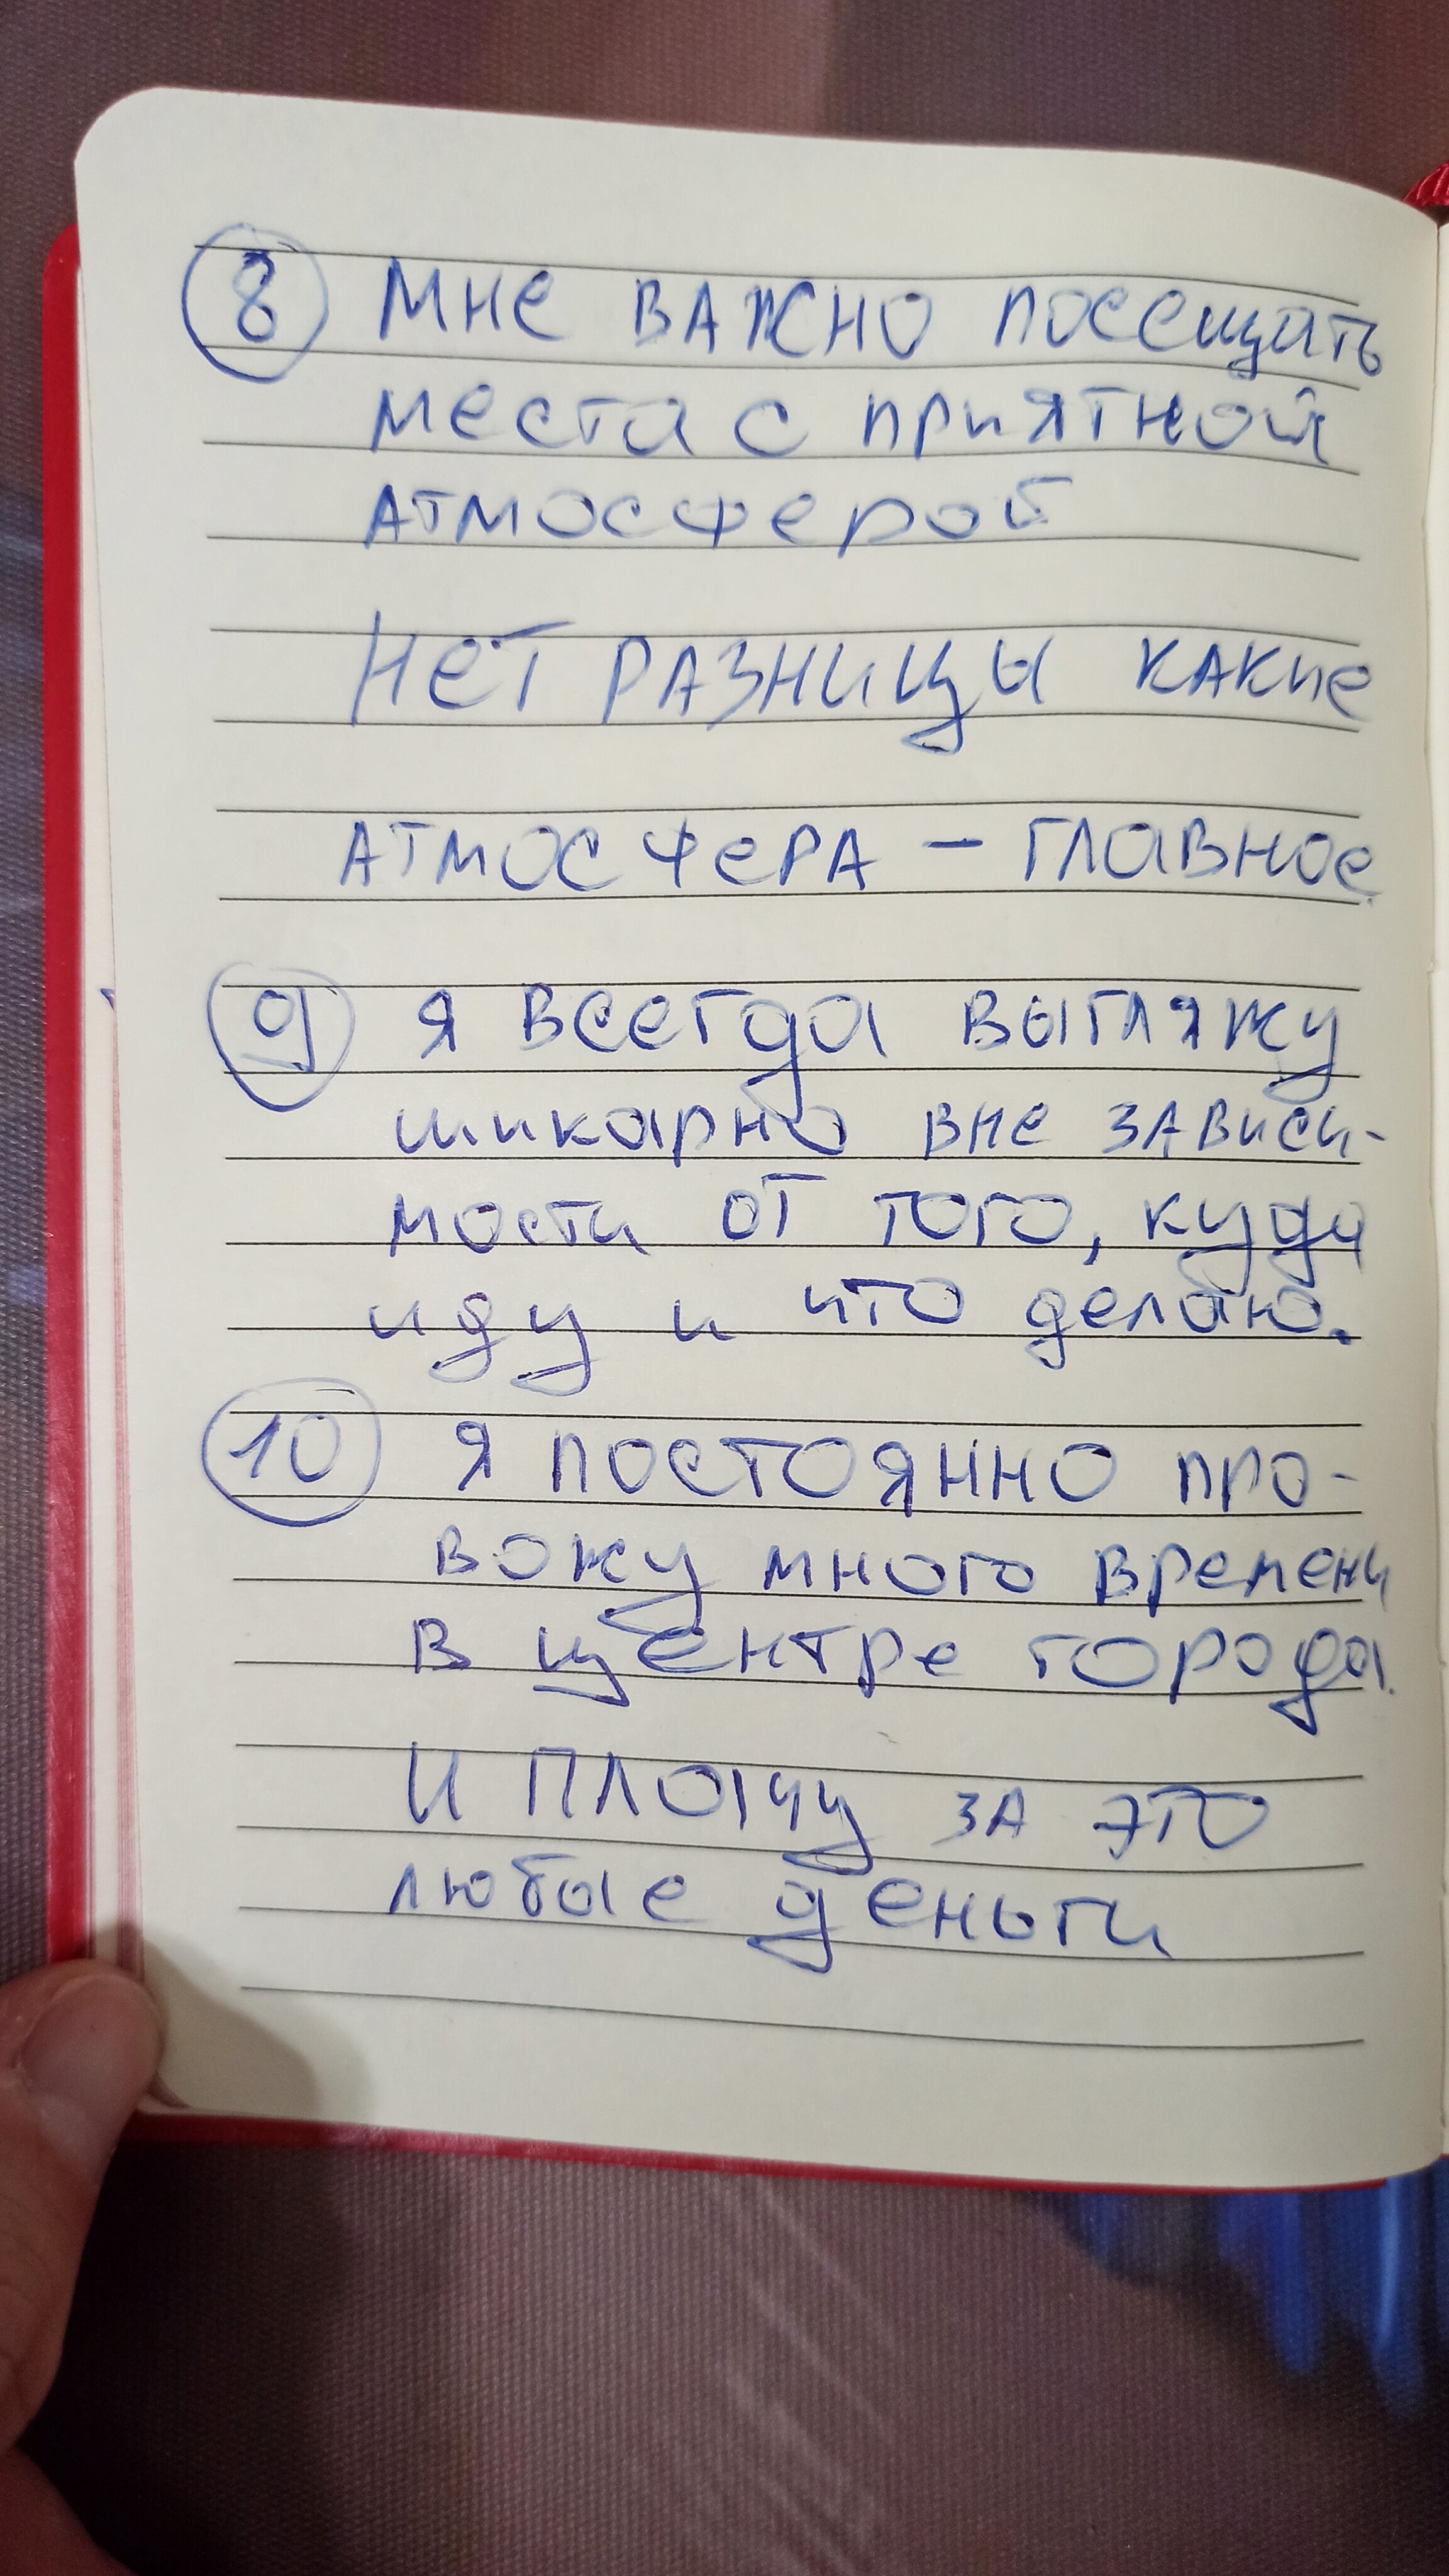 8 Мне важно посещать
места с приятной
атмосферой
Нет разницы какие
атмосфера – главное.
9 Я всегда выгляжу
шикарно вне зависи-
мости от того, куда
иду и что делаю.
10 Я постоянно про-
вожу много времени
в центре города.
И плачу за это
любые деньги